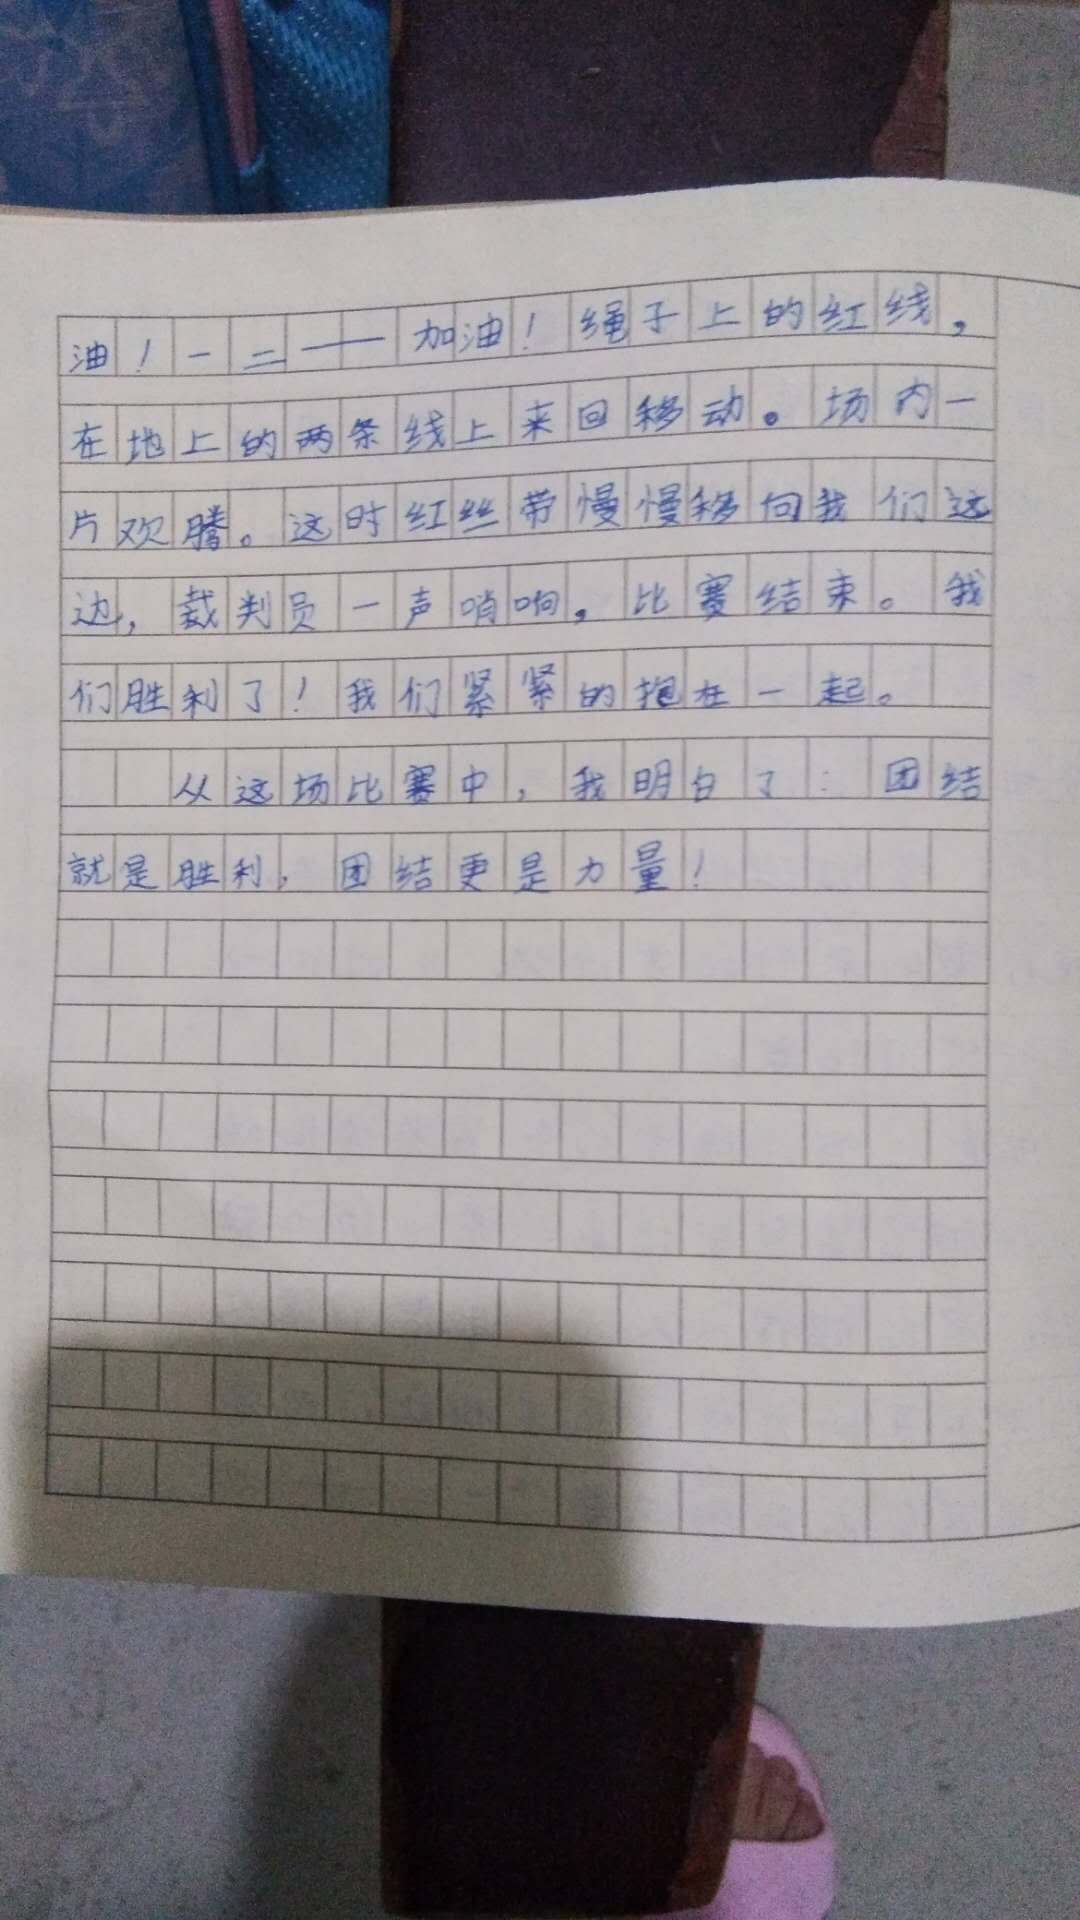 油！一二——加油！绳子上的红线，
在地上的两条线上来回移动。场内一
片欢腾。这时红丝带慢慢移向我们这
边，裁判员一声哨响，比赛结束。我
们胜利了！我们紧紧的抱在一起。
从这场比赛中，我明白了：团结
就是胜利，团结更是力量！